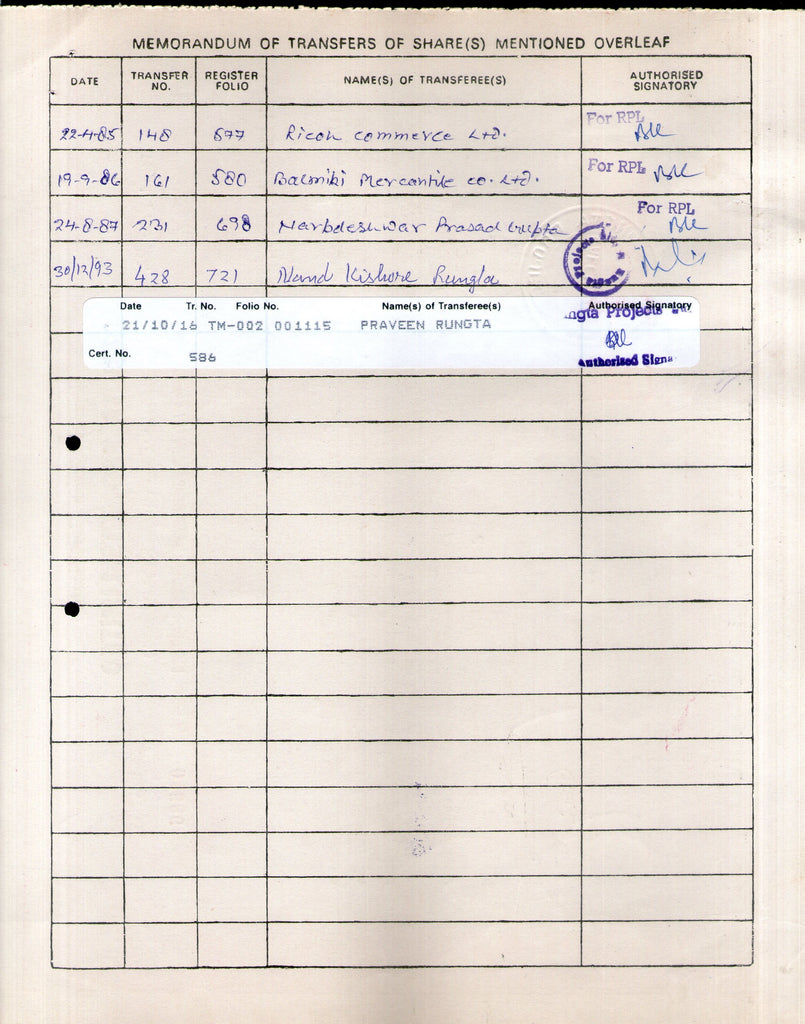 MEMORANDUM OF TRANSFERS OF SHARE(S) MENTIONED OVERLEAF
DATE TRANSFER NO. REGISTER FOLIO NAME(S) OF TRANSFEREE(S) AUTHORISED SIGNATORY
For RPL
22-4-85 148 577 Ricon commerce Ltd.
19-9-86 161 580 Balmiki Mercantile co. Ltd. For RPL
For RPL
24-8-87 231 698 Narbdeshwar Prasad Gupta
Projects
30/12/93 428 721 Nand Kishore Rungta
Date Tr. No. Folio No. Name(s) of Transferee(s) Authorised Signatory
ngta Projects
21/10/16 TM-002 001115 PRAVEEN RUNGTA
Cert. No. 586
Authorised Signa